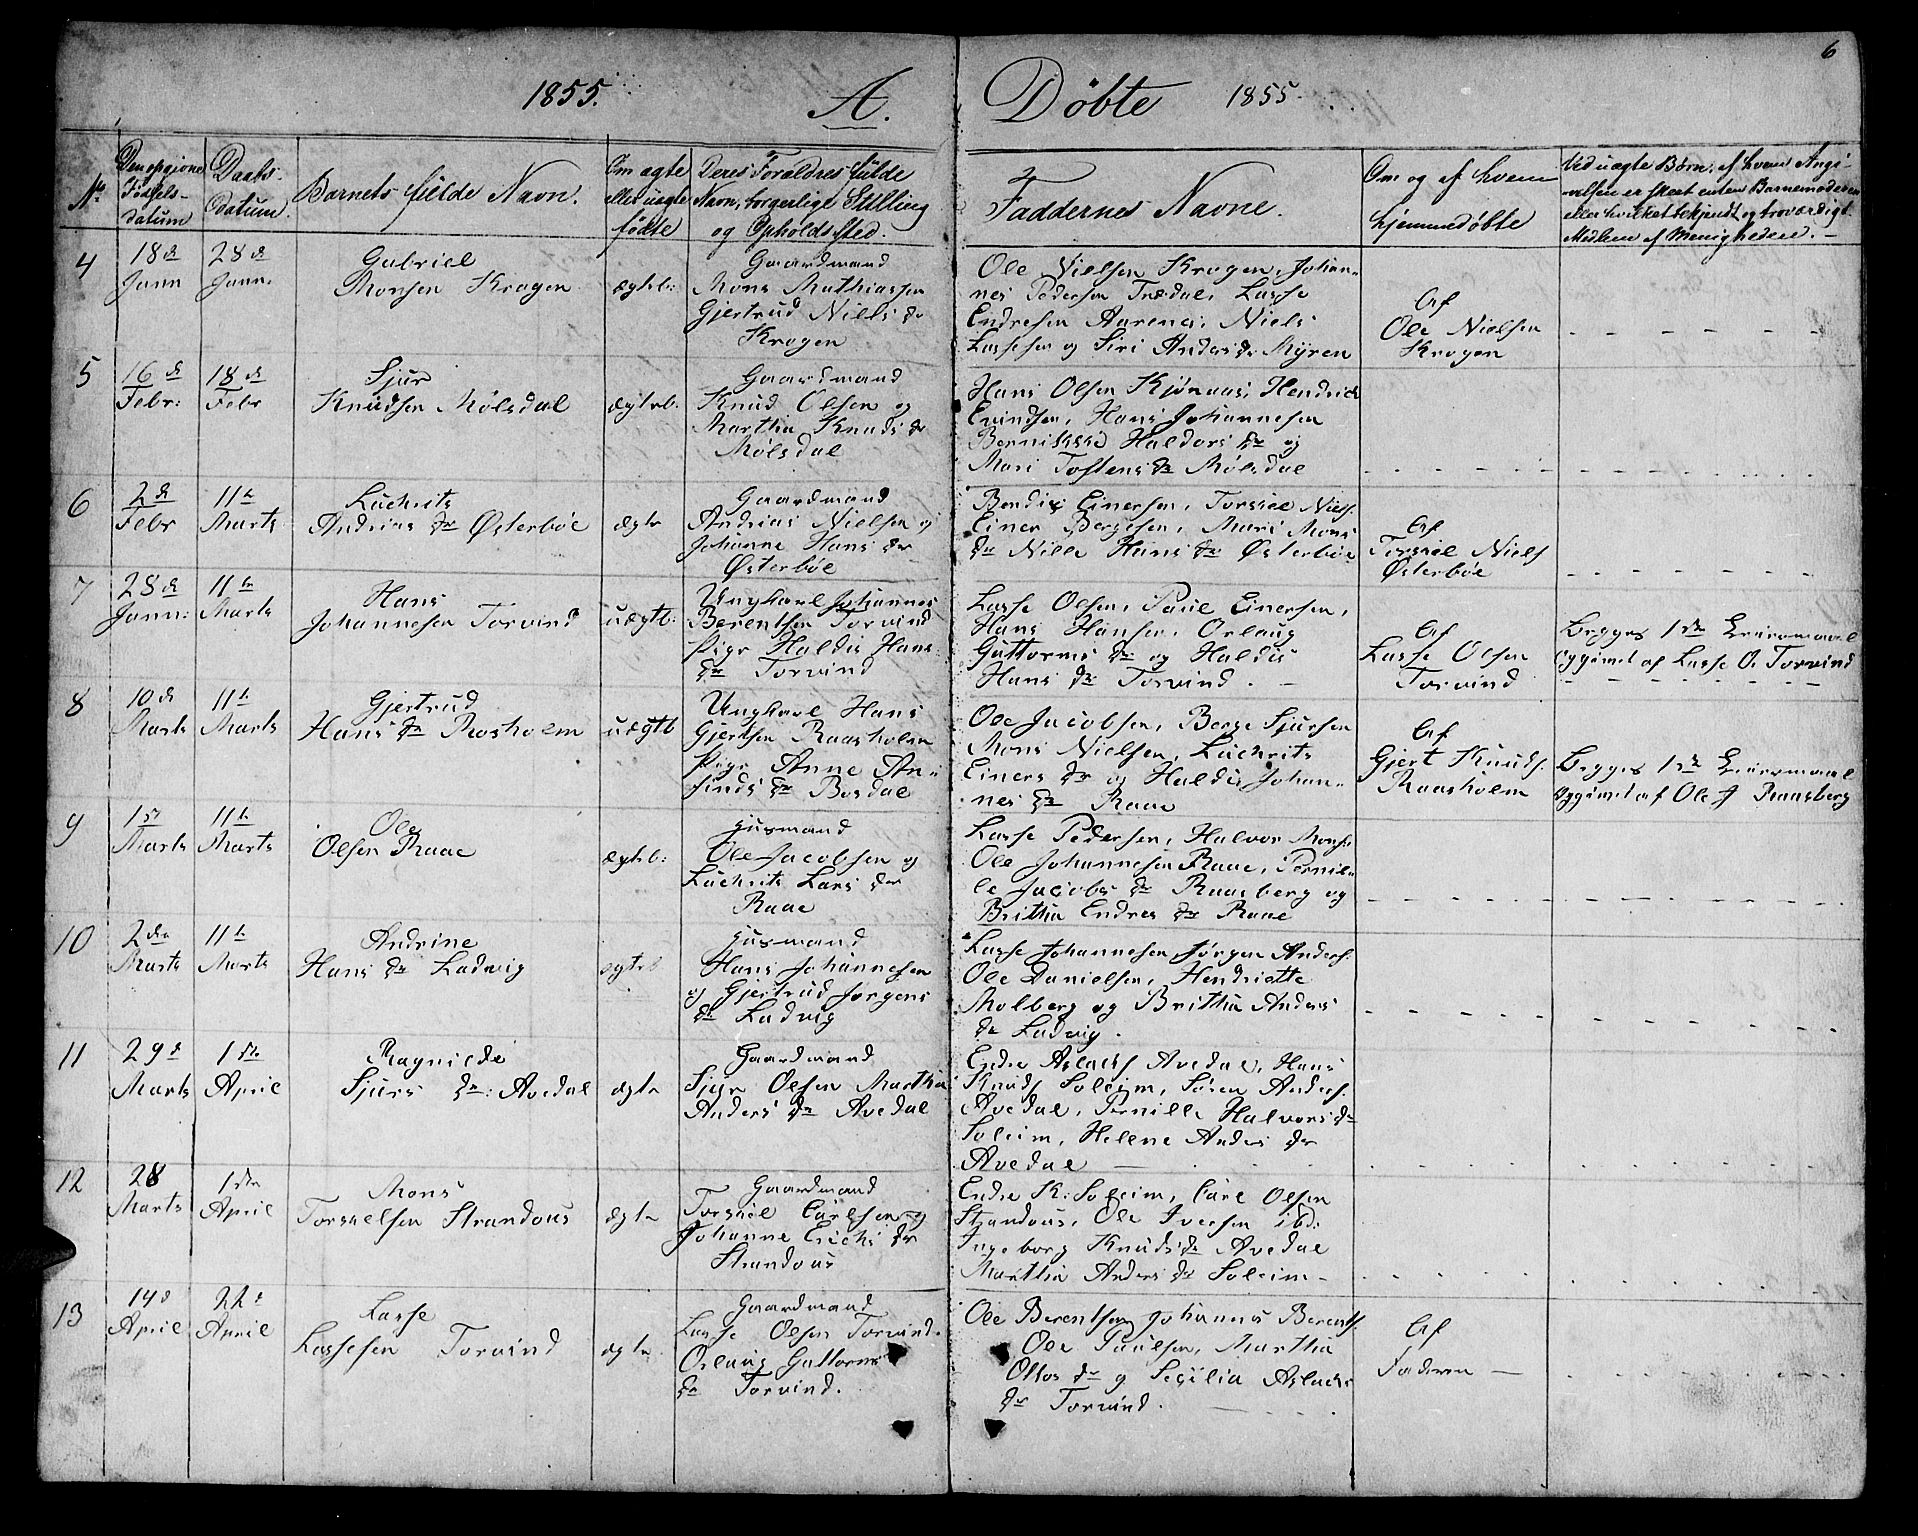 6
1855. A. Døbte 1855.
No
Den opgivne Fødsels-datum
Daabs-datum.
Barnets fulde Navn.
Om ægte eller uægte fødte
Deres Forældres fulde Navn, borgerlige Stilling og Opholdssted.
Faddernes Navne.
Om og af hvem hjemmedøbte
Ved uægte Børn, af hvem Angivelsen er skeet enten Barnemoderen eller hvilket bekjendt og troværdigt Medlem af Menigheden.
4
18de Janu
28de Janu.
Gabriel
Monsen Krogen
ægteb:
Gaardmand
Mons Mathiassen
Gjertrud Niels dr
Krogen
Ole Nielsen Krogen, Johan-
nes Pedersen Trædal, Lasse
Endresen Aarenes, Niels
Lassesen og Siri Anders dr Myren
Af
Ole Nielsen
Krogen
5
16de Febr:
18de Febr
Sjur
Knudsen Mølsdal
ægteb.
Gaardmand
Knud Olsen og
Martha Knuds dr
Mølsdal
Hans Olsen Kjønaas, Hendrick
Eivindsen, Hans Johannesen
Haldors dr og
Mari Tostens dr Mølsdal
6
2de Febr
11te Marts
Luchrits
Andrias dr Østerbøe
ægte
Gaardmand
Andrias Nielsen og
Johanne Hans dr
Østerbøe
Bendix Einersen, Torskel Niels.
Einer Bergesen, Mari Mons
dr Nille Hans dr Østerbøe
Af
Torskel Niels
Østerbøe
7
28de Janu:
11te Marts
Hans
Johannesen Torvind
uægteb:
Ungkarl Johannes
Berentsen Torvind
Pige Haldis Hans
dr Torvind
Lasse Olsen, Paul Einersen,
Hans Hansen, Orlaug
Guttorms dr og Haldis
Hans dr Torvind.
Af
Lasse Olsen
Torvind
Begges 1ste Leiermaal
opgivet af Lasse O. Torvind
8
10de Marts
11te Marts
Gjertrud
Hans dr Raasholm
uægteb
Ungkarl Hans
Gjertsen Raasholm
Pige Anne An-
finds dr Bosdal
Ole Jacobsen, Berge Sjursen
Mons Nielsen, Luchrits
Einers dr og Haldis Johan-
nes dr Raae
Af
Gjert Knuds.
Raasholm
Begges 1ste Leiermaal
opgivet af Ole J Raasberg
9
1ste Marts
11te Marts
Ole
Olsen Raae
ægteb:
Husmand
Ole Jacobsen og
Luchrits Lars dr
Raae
Lasse Pedersen, Halvor Mons.
Ole Johannesen Raae, Pernil-
le Jacobs dr Raasberg og
Britha Endres dr Raae
10
2den Marts
11te Marts
Andrine
Hans dr Ladvig
ægteb
Husmand
Hans Johannesen
og Gjertrud Jørgens
dr Ladvig
Lasse Johannesen Jørgen Anders.
Ole Danielsen, Henriette
Molberg og Britha Anders
dr Ladvig.
11
29d Marts
1ste April
Ragnilde
Sjurs dr: Avedal
ægte
Gaardmand
Sjur Olsen Martha
Anders dr Avedal
Endre Aslacks Avedal, Hans
Knuds Soleim, Søren Anders.
Avedal, Pernille Halvors dr
Soleim, Helene Anders dr
Avedal
12
28 Marts
1ste April
Mons
Torskelsen Strandous
ægte
Gaardmand
Torskel Carlsen og
Johanne Erichs dr
Strandous
Endre K: Soleim, Carl Olsen
Strandous, Ole Iversen ibd:
Ingeborg Knuds dr Avedal
Martha Anders dr Soleim
13
14d April
22d April
Lasse
Lassesen Torvind
ægte
Gaardmand
Lasse Olsen Torvind.
Orlaug Guttorms
dr Torvind.
Ole Berentsen Johannes Berents.
Ole Paulsen, Martha
Ottos dr og Secilia Aslacks
dr Torvind.
Af
Faderen